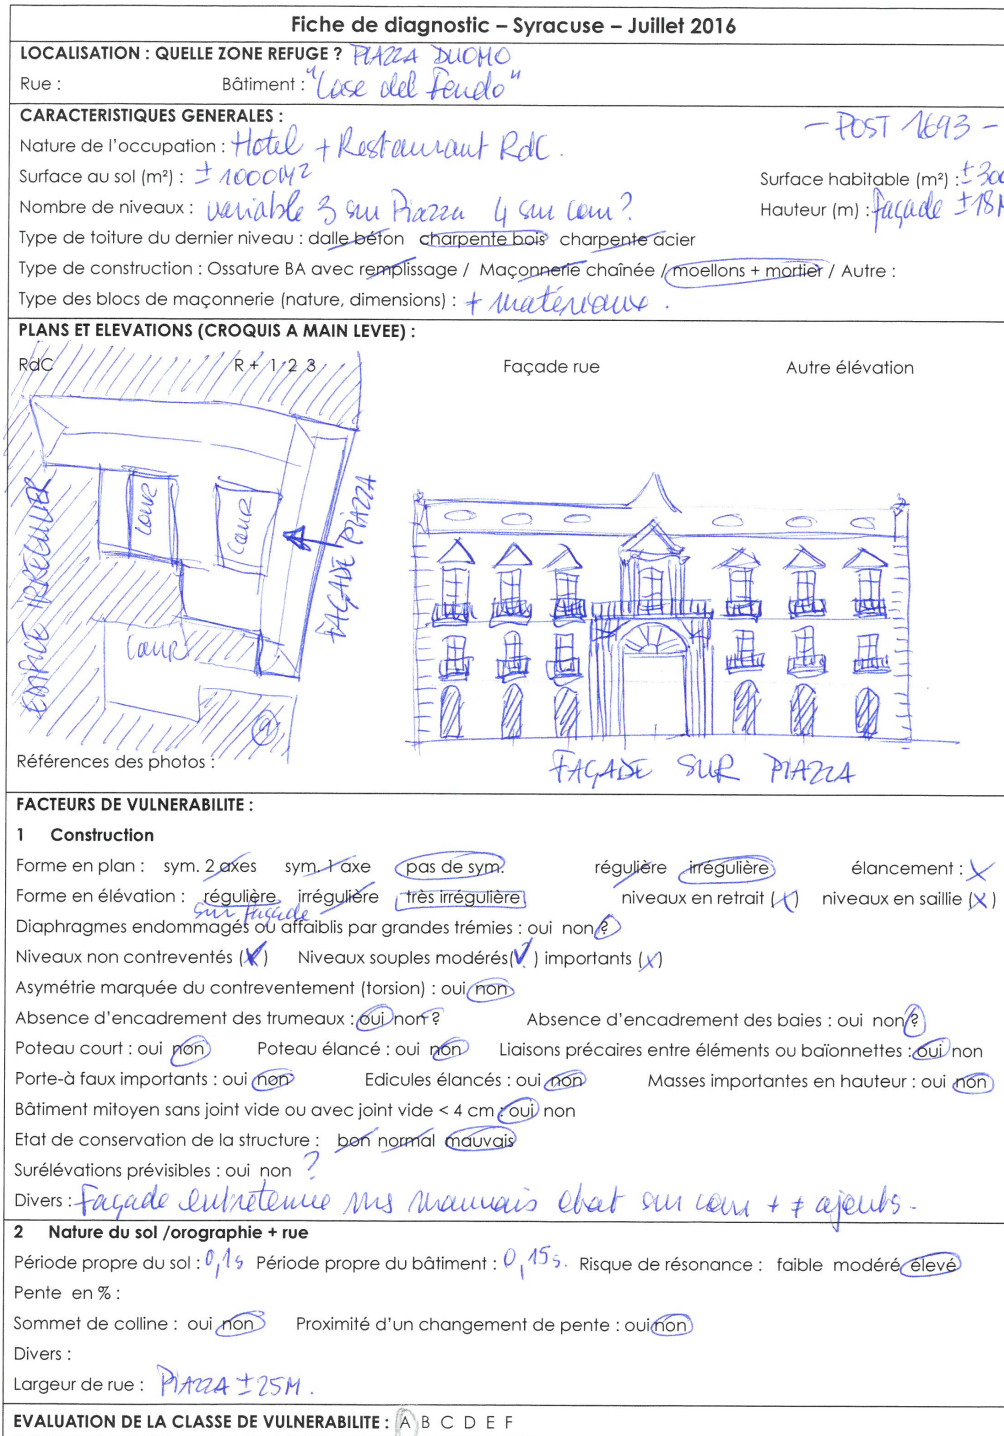 Fiche de diagnostic – Syracuse – Juillet 2016
LOCALISATION : QUELLE ZONE REFUGE ? PIAZZA DUOMO
Rue : Bâtiment : "Case del Feudo"
CARACTERISTIQUES GENERALES : - POST 1693 -
Nature de l'occupation : Hotel + Restaurant RdC.
Surface au sol (m²) : ± 1000M2 Surface habitable (m²) : ± 300
Nombre de niveaux : variable 3 sur Piazza 4 sur cour ? Hauteur (m) : façade ±18M
Type de toiture du dernier niveau : dalle béton charpente bois charpente acier
Type de construction : Ossature BA avec remplissage / Maçonnerie chaînée / moellons + mortier / Autre :
Type des blocs de maçonnerie (nature, dimensions) : + matériaux .
PLANS ET ELEVATIONS (CROQUIS A MAIN LEVEE) :
RdC R + 1 2 3 Façade rue Autre élévation
EDIFICE IRREGULIER
COUR
COUR
FAÇADE PIAZZA
COUR
Références des photos :
FAÇADE SUR PIAZZA
FACTEURS DE VULNERABILITE :
1 Construction
Forme en plan : sym. 2 axes sym. 1 axe pas de sym. régulière irrégulière élancement : X
Forme en élévation : régulière irrégulière très irrégulière niveaux en retrait (X) niveaux en saillie (X)
sur façade
Diaphragmes endommagés ou affaiblis par grandes trémies : oui non ?
Niveaux non contreventés (X) Niveaux souples modérés(V) importants (X)
Asymétrie marquée du contreventement (torsion) : oui non
Absence d'encadrement des trumeaux : oui non ? Absence d'encadrement des baies : oui non ?
Poteau court : oui non Poteau élancé : oui non Liaisons précaires entre éléments ou baïonnettes : oui non
Porte-à faux importants : oui non Edicules élancés : oui non Masses importantes en hauteur : oui non
Bâtiment mitoyen sans joint vide ou avec joint vide < 4 cm : oui non
Etat de conservation de la structure : bon normal mauvais
Surélévations prévisibles : oui non ?
Divers : Façade entretenue mauvais etat sur cour + ≠ ajouts -
2 Nature du sol /orographie + rue
Période propre du sol : 0,1s Période propre du bâtiment : 0,15s. Risque de résonance : faible modéré élevé
Pente en % :
Sommet de colline : oui non Proximité d'un changement de pente : oui non
Divers :
Largeur de rue : PIAZZA ±25M .
EVALUATION DE LA CLASSE DE VULNERABILITE : A B C D E F